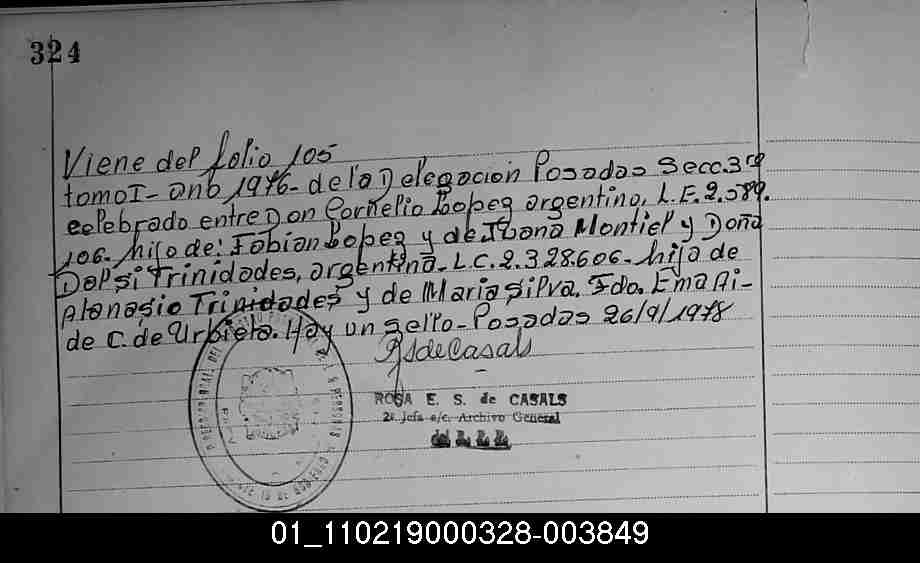 324
Viene del folio 105
tomo I- año 1976- de la Delegacion Posadas Secc. 3ra
celebrado entre Don Cornelio Lopez argentino, L.E. 2.089.
106- hijo de: Fabian Lopez y de Juana Montiel y Doña
Delsi Trinidades, argentina- L.C. 2.328.606- hija de
Atanasio Trinidades y de Maria Silva. Fdo. Ema Ai-
de C. de Urbieta. Hay un sello- Posadas 26/9/1978
RSdeCasals
ROSA E. S. de CASALS
2a Jefa a/c. Archivo General
del R. P. P.
01_110219000328-003849